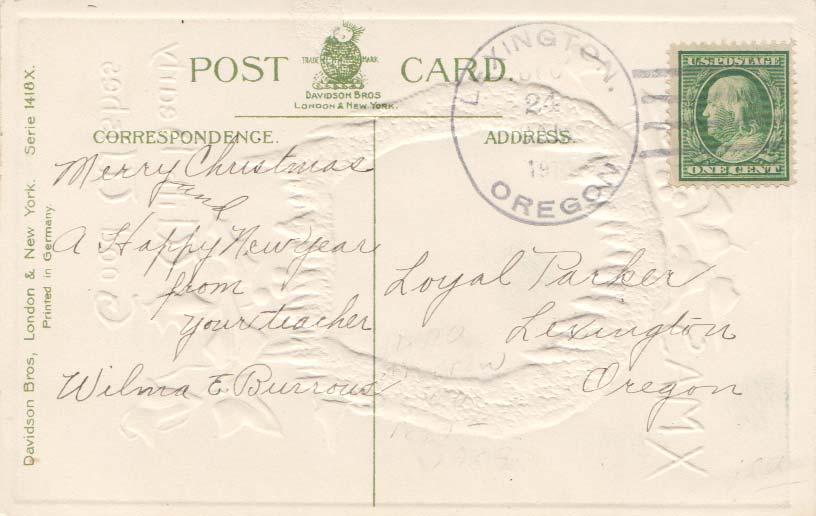 POST CARD.
TRADE MARK.
DAVIDSON BROS
LONDON & NEW YORK.
CORRESPONDENCE.
ADDRESS.
Merry Christmas
and
A Happy New Year
from
your teacher
Wilma E Burrous
Loyal Parker
Lexington
Oregon
LEXINGTON.
24
19
OREGON
U.S. POSTAGE
ONE CENT
Davidson Bros, London & New York. Serie 1418X.
Printed in Germany.
XMAS